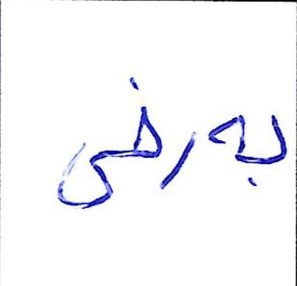 بەرخی